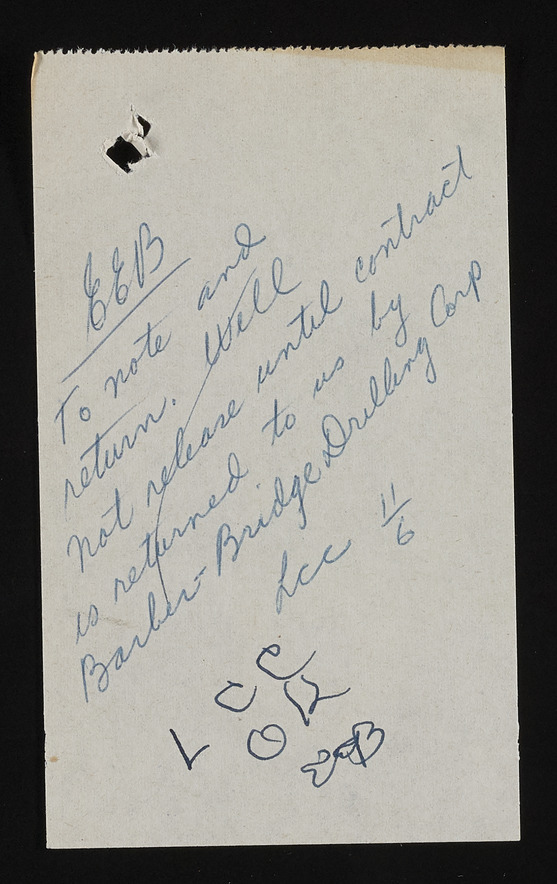 EEB
To note and
return. Will
not release until contract
is returned to us by
Barber-Bridge Drilling Corp
LCC 11/6
LCC
OK
EEB